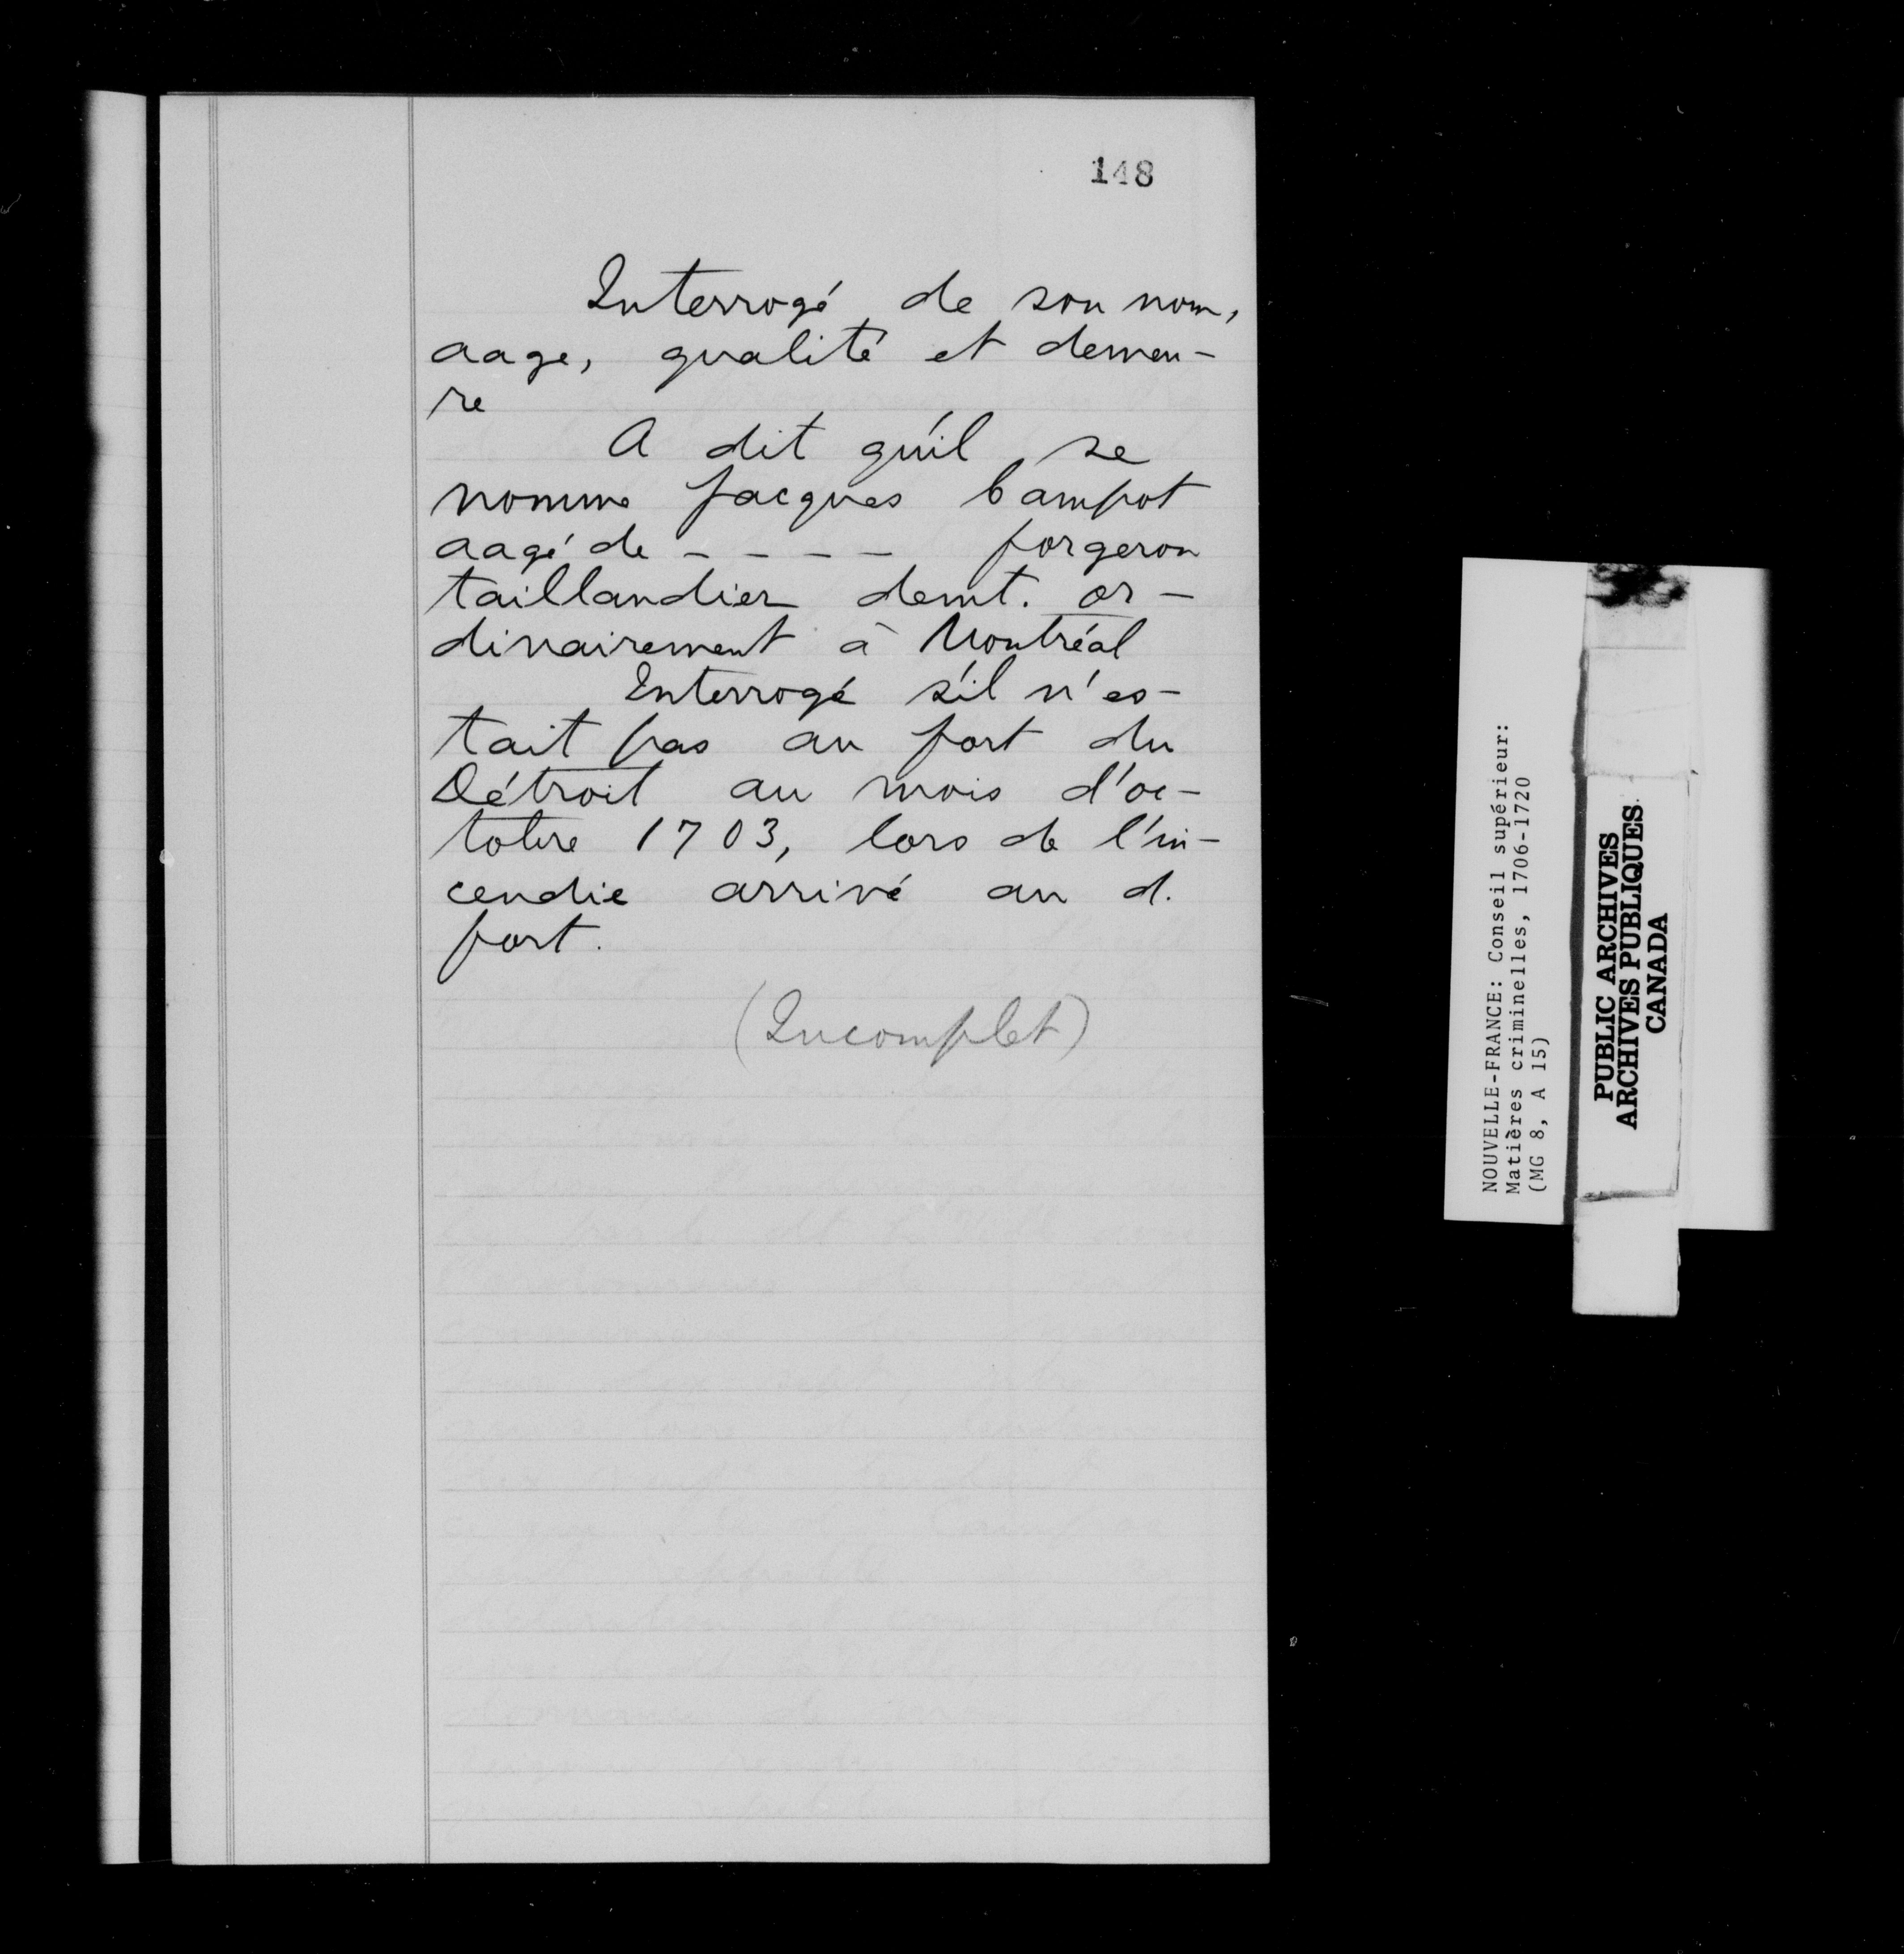 148
Interrogé de son nom,
aage, qualité et demeu-
re
A dit qu'il se
nomme Jacques Campot
aagé de - - - - forgeron
taillandier demt. or-
dinairement à Montréal
Interrogé s'il n'es-
tait pas au fort du
Détroit au mois d'oc-
tobre 1703, lors de l'in-
cendie arrivé au d.
fort.
(Incomplet)
NOUVELLE-FRANCE: Conseil supérieur:
Matières criminelles, 1706-1720
(MG 8, A 15)
PUBLIC ARCHIVES
ARCHIVES PUBLIQUES
CANADA